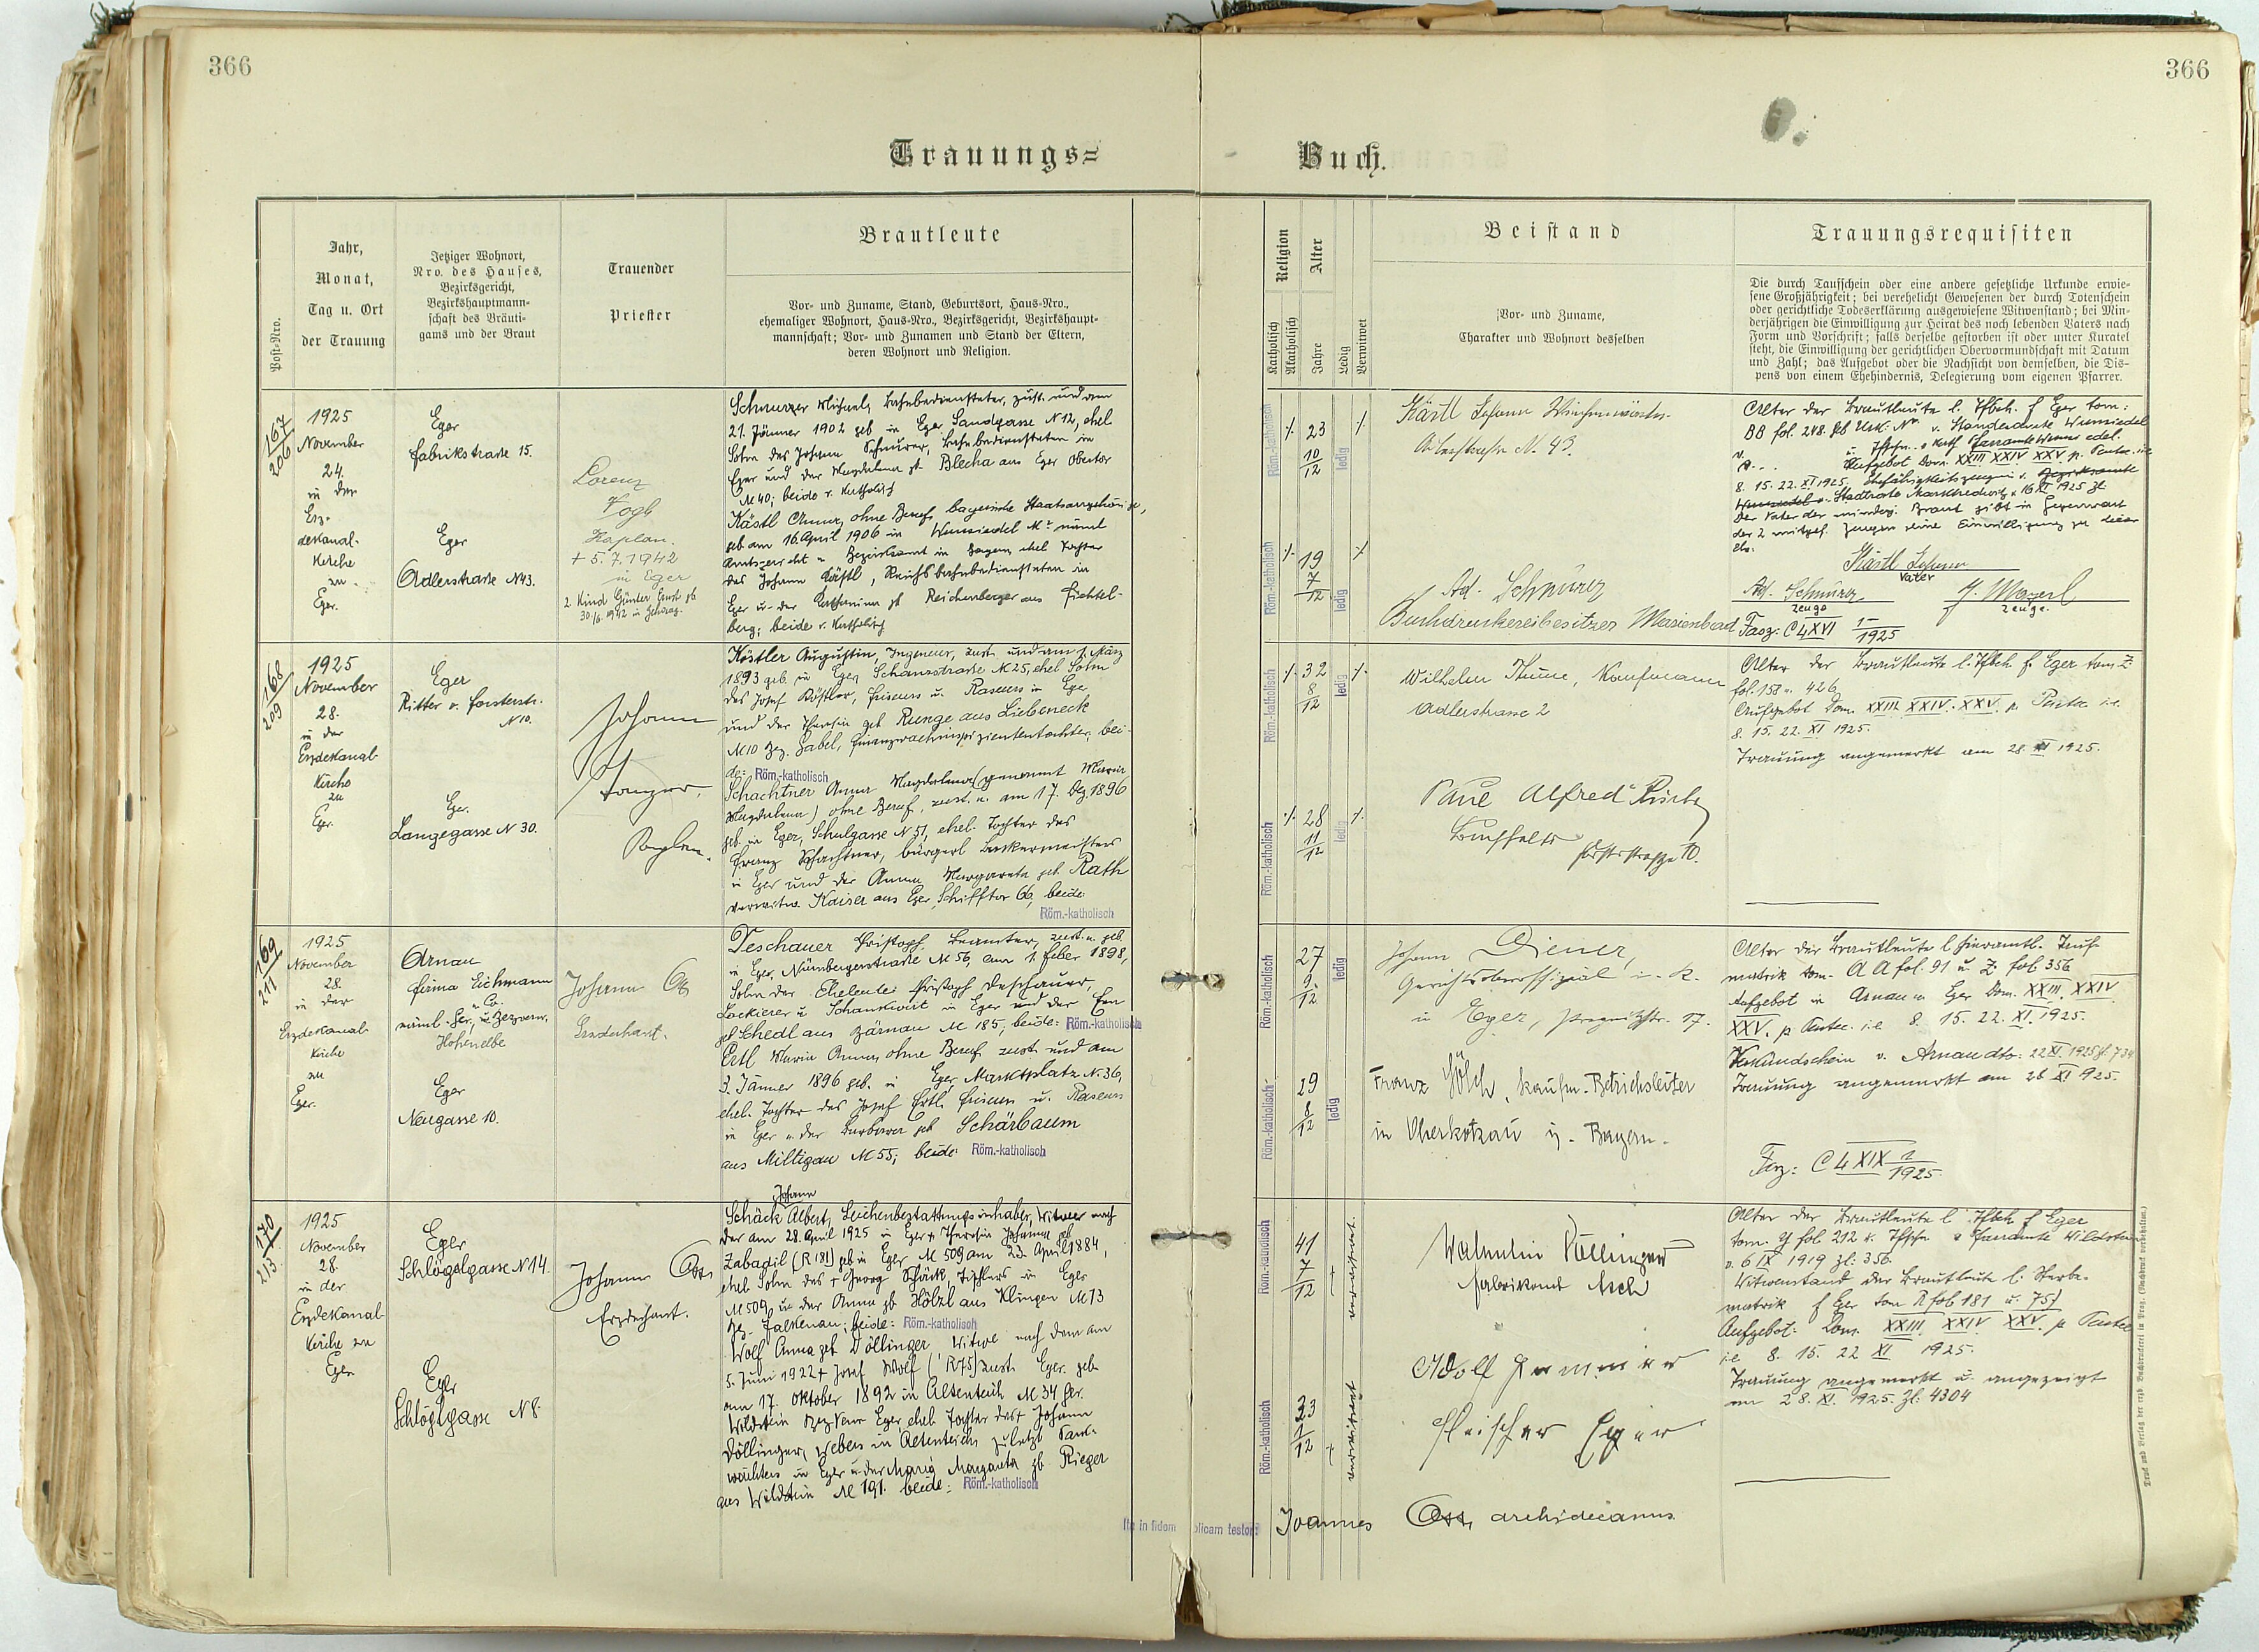 366
366
Trauungs=
Buch.
Post-Nro.
Jahr,
Monat,
Tag u. Ort
der Trauung
Jetziger Wohnort,
Nro. des Hauses,
Bezirksgericht,
Bezirkshauptmann-
schaft des Bräuti-
gams und der Braut
Trauender
Priester
Brautleute
Vor- und Zuname, Stand, Geburtsort, Haus-Nro.,
ehemaliger Wohnort, Haus-Nro., Bezirksgericht, Bezirkshaupt-
mannschaft; Vor- und Zunamen und Stand der Eltern,
deren Wohnort und Religion.
Religion
Katholisch
Akatholisch
Alter
Jahre
Ledig
Verwitwet
Beistand
Vor- und Zuname,
Charakter und Wohnort desselben
Trauungsrequisiten
Die durch Taufschein oder eine andere gesetzliche Urkunde erwie-
sene Großjährigkeit; bei verehelicht Gewesenen der durch Totenschein
oder gerichtliche Todeserklärung ausgewiesene Witwenstand; bei Min-
derjährigen die Einwilligung zur Heirat des noch lebenden Vaters nach
Form und Vorschrift; falls derselbe gestorben ist oder unter Kuratel
steht, die Einwilligung der gerichtlichen Obervormundschaft mit Datum
und Zahl; das Aufgebot oder die Nachsicht von demselben, die Dis-
pens von einem Ehehindernis, Delegierung vom eigenen Pfarrer.
167
206
1925
November
24.
in der
Erz-
dekanal-
Kirche
zu
Eger.
Eger
Fabrikstrasse 15.
Eger
Adlerstrasse N43.
Lorenz
Vogl
Kaplan.
+ 5.7.1942
in Eger
2 Kind Günter Ernst gb
30/6. 1942 in
Schnurzer Michael, Bahnbediensteter, zust. und am
21. Jänner 1902 geb in Eger Sandgasse N12, ehel
Sohn des Johann Schnurer, Bahnbediensteten in
Eger und der Magdalena gb Blecha aus Eger Obertor
N 40; beide r. katholisch
Kästl Anna, ohne Beruf, bayerische Staatsangehörige,
geb am 16. April 1906 in Wunsiedel
Amtsgericht u Bezirksamt in Bayern, ehel Tochter
des Johann Kästl, Reichsbahnbediensteten in
Eger u. der Katharina gb Reichenberger aus Fichtel-
berg; beide r. katholisch
Röm.-katholisch
23
10
12
ledig
Röm.-katholisch
19
7
12
ledig
Kästl Johann
N. 43.
Ad. Schnürer
Buchdruckereibesitzer Marienbad
Alter der Brautleute l. Tfbch. f Eger tom:
BB fol. 248. v. Standesamte Wunsiedel
Aufgebot Dom. XXIII XXIV XXV p. Pentec. i.e
8. 15. 22. XI 1925, Ehefähigkeitszeugnis v. Bezirksamte
Wunsiedel v. Stadtrate Marktredwitz v 16 XI 1925 Zl.
Der Vater der mindrj. Braut gibt in Gegenwart
der 2 mitgef. Zeugen seine Einwilligung zu dieser
Ehe:
Kästl Johann
Vater
Ad. Schnürer
Zeuge
Zeuge.
Fasz: C 4 XVI 1
1925
168
209
1925
November
28.
in der
Erzdekanal-
Kirche
zu
Eger.
Eger
Ritter v. Forsterstr.
N 10.
Eger.
Langegasse N 30.
Johann
Kaplan.
Köstler Augustin, Ingenieur, zust. und am 1. März
1893 geb. in Eger Schanzstrasse N 25, ehel Sohn
des Josef Köstler, Friseurs u. Raseurs in Eger
und der Theresia geb Runge aus Liebeneck
N 10 Bez. Gabel, Finanzwachinspizientenstochter, bei-
de: Röm.-katholisch
Schachtner Anna Magdalena (genannt Maria
Magdalena) ohne Beruf, zust. u. am 17. Dez. 1896
geb in Eger, Schulgasse N 51, ehel. Tochter des
Franz Schachtner, bürgerl Bäckermeisters
in Eger und der Anna Margareta geb Rath
verwitw. Kaiser aus Eger, Schifftor 66, beide
Röm.-katholisch
Röm.-katholisch
32
8
12
ledig
Röm.-katholisch
28
11
12
ledig
Wilhelm Thume, Kaufmann
Adlerstrasse 2
Paul Alfred
10.
Alter der Brautleute l. Tfbch. f. Eger tom Z.
fol. 158 u. 426
Aufgebot Dom. XXIII. XXIV. XXV. p. Pentec i.e.
8. 15. 22. XI 1925.
Trauung angemerkt am 28. XI 1925.
169
211
1925
November
28.
in der
Erzdekanal-
Kirche
zu
Eger.
Arnau
Firma Eichmann
u Co.
Hohenelbe
Eger
Neugasse 10.
Johann Oß
Erzdechant.
Deschauer Christoph Beamter, zust. u. geb.
in Eger, Nürnbergerstrasse N 56, am 1. Feber 1898,
Sohn der Eheleute Christoph Deschauer,
Lackierer u Schankwirt in Eger und der Eva
geb Schedl aus Bärnau N 185, beide: Röm.-katholisch
Ertl Maria Anna, ohne Beruf zust. und am
3. Jänner 1896 geb. in Eger, Marktplatz N. 36,
ehel. Tochter des Josef Ertl, Friseurs u. Raseurs
in Eger u der Barbara geb Schärbaum
aus Miltigau N 55; beide: Röm.-katholisch
Röm.-katholisch
27
9
12
ledig
Röm.-katholisch
29
8
12
ledig
Johann Diener,
Gerichtsoberoffizial i. R.
in Eger, 17.
Franz Hölch, kaufm. Betriebsleiter
in Oberkotzau i. Bayern.
Alter der Brautleute l hieramtl. Tauf-
matrik tom. AA fol. 91 u. Z fol 356
Aufgebot in Arnau u Eger Dom. XXIII, XXIV
XXV. p Pentec. i.e 8. 15. 22. XI. 1925.
Verkündschein v. Arnau dto: 22 XI. 1925 Zl. 734
Trauung angemerkt am 28 XI 925.
Fasz: C 4 XIX 1
1925
170
213
1925
November
28.
in der
Erzdekanal-
Kirche zu
Eger
Eger
Schlögelgasse N 14
Eger
Schlöglgasse N 8.
Johann Oss,
Erzdechant.
Johann
Schäck Albert, Leichenbestattungsinhaber, Witwer nach
der am 28. April 1925 in Eger + Theresia Johanna gb
Zabadil (R 181) geb in Eger N 509 am 23. April 1884,
ehel Sohn des + Georg Schäck, Tischlers in Eger
N 509 u der Anna gb Hölzl aus Klinger N 13
Bez. Falkenau; beide: Röm.-katholisch
Wolf Anna geb Döllinger Witwe nach dem am
5. Juni 1922 + Josef Wolf (R 75) zust. Eger. geb
am 17. Oktober 1892 in Altenteich N 34 Ger.
Wildstein Bez. Eger, ehel. Tochter des + Johann
Döllinger, Webers in Altenteich, zuletzt Park-
wächters in Eger u der Maria Margareta gb Rieger
aus Wildstein N 191. beide: Röm.-katholisch
Röm.-katholisch
41
7
12
verwitwet
Röm.-katholisch
33
1
12
verwitwet
Döllinger
Asch
Adolf
Fleischer Eger
Alter der Brautleute l. Tfbch f Eger
tom. y fol 212 u. Tfsch v Pfarramte Wildstein
v. 6 IX 1919 Zl: 356.
Witwenstand der Brautleute l. Sterbe-
matrik f Eger tom R fol 181 u. 75)
Aufgebot: Dom. XXIII. XXIV XXV. p Pentec
i.e 8. 15. 22 XI 1925.
Trauung angemerkt u. angezeigt
am 28. XI. 1925. Zl. 4304
Ita in fidem
blicam testor:
Joannes Oss, archidecanus.
Druck und Verlag der erzb. Buchdruckerei in Prag. (Nachdruck vorbehalten.)